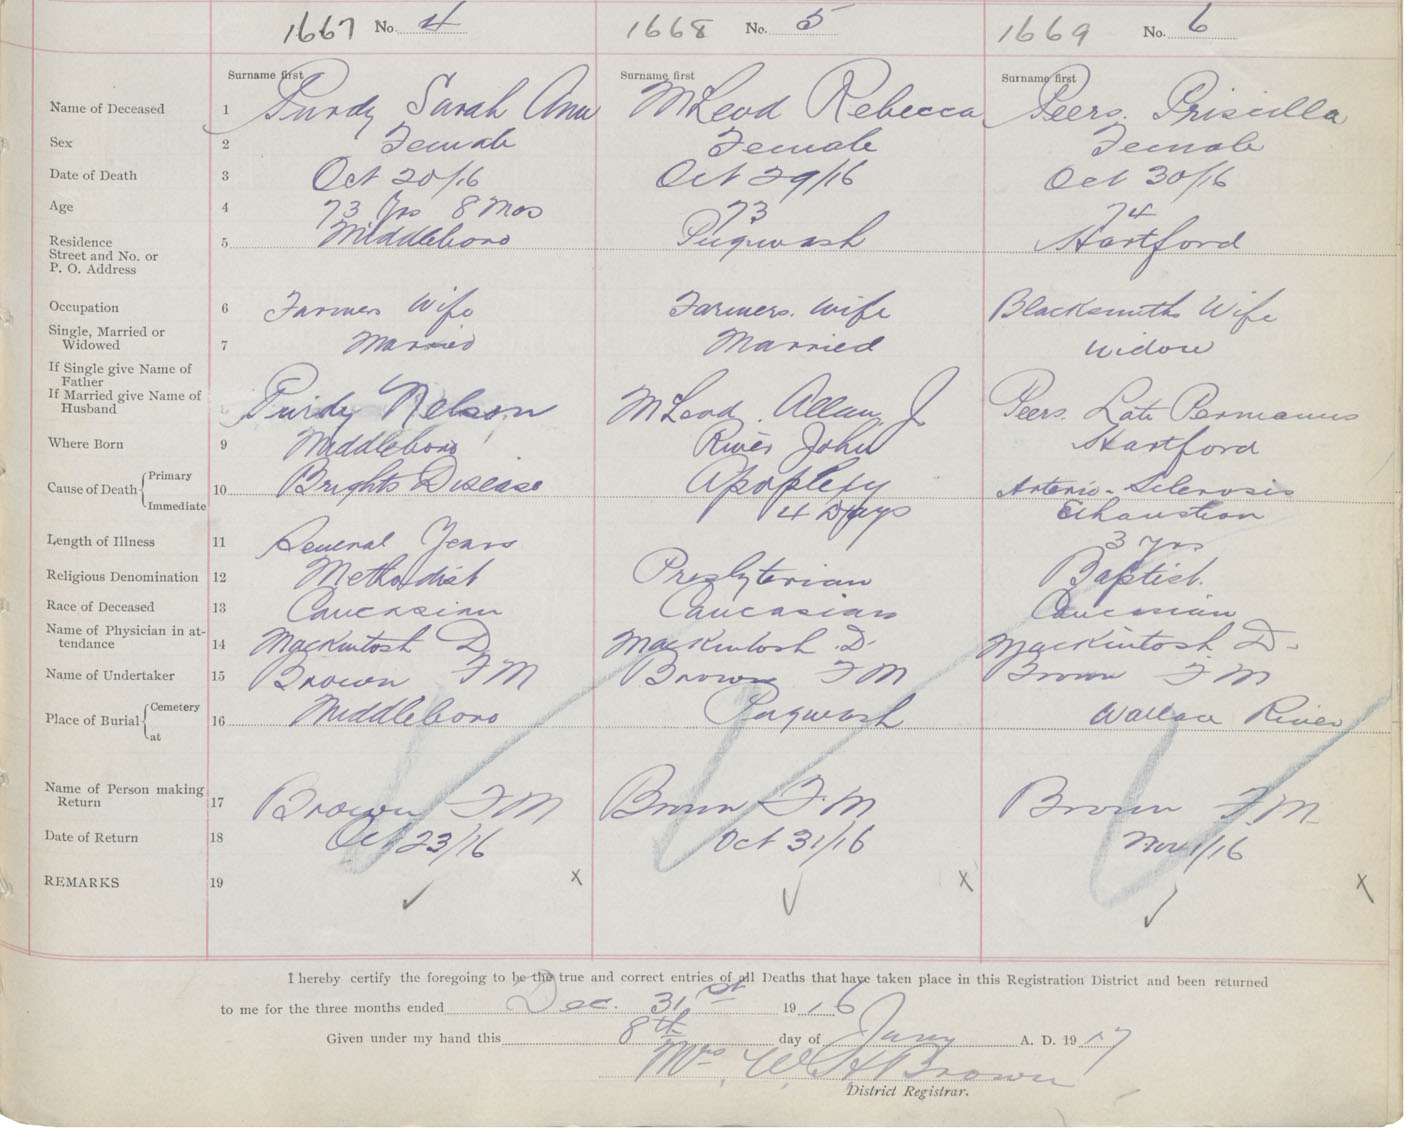 1667 No. 4 1668 No. 5 1669 No. 6
Surname first Surname first Surname first
Name of Deceased 1 Purdy Sarah Ann McLeod Rebecca Peers. Priscilla
Sex 2 Female Female Female
Date of Death 3 Oct 20/16 Oct 29/16 Oct 30/16
Age 4 73 Yrs 8 Mos 73 74
Residence
Street and No. or
P. O. Address
5 Middleboro Pugwash Hartford
Occupation 6 Farmers Wife Farmers. Wife Blacksmiths Wife
Single, Married or
Widowed 7 Married Married Widow
If Single give Name of
Father
If Married give Name of
Husband
Purdy Nelson McLeod. Allan J Peers. Late
Where Born 9 Middleboro River John Hartford
Cause of Death Primary
Immediate
10 Brights Disease Apoplexy Arterio-Sclerosis
4 Days Exhaustion
Length of Illness 11 Several Years 3 yrs
Religious Denomination 12 Methodist Presbyterian Baptist.
Race of Deceased 13 Caucasian Caucasian Caucasian
Name of Physician in at-
tendance 14 Mackintosh D Mackintosh D. Mackintosh D.
Name of Undertaker 15 Brown F M Brown F M Brown F. M
Place of Burial Cemetery
at
16 Middleboro Pugwash Wallace River
Name of Person making
Return 17 Brown F M Brown F. M Brown F. M.
Date of Return 18 Oct 23/16 Oct 31/16 Nov 1/16
REMARKS 19 x x x
I hereby certify the foregoing to be the true and correct entries of all Deaths that have taken place in this Registration District and been returned
to me for the three months ended Dec. 31st 1916
Given under my hand this 8th day of Jany A. D. 1917
Mrs. W. H Brown
District Registrar.